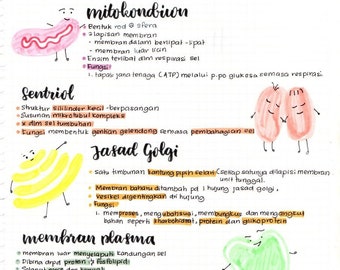 mitokondrion
Bentuk rod @ sfera
2 lapisan membran
- membran dalam berlipat-lipat
- membran luar licin
Enzim terlibat dlm respirasi sel
Fungsi:
1. tapak jana tenaga (ATP) melalui p.po glukosa semasa respirasi
Sentriol
Struktur silinder kecil - berpasangan
Susunan mikrotubul kompleks
x dlm sel tumbuhan
Fungsi: membentuk gentian gelendong semasa pembahagian sel
Jasad Golgi
Satu timbunan kantung pipih selari (setiap satunya dilapisi membran
unit tunggal.
Membran baharu ditambah pd 1 hujung jasad golgi,
Vesikel digentingkan di hujung
Fungsi
1. memproses, mengubahsuai, membungkus dan mengangkut
bahan seperti kharbohidrat, protein dan glikoprotein
membran plasma
membran luar menyelaputi kandungan sel
Dibina drpd protein & fosfolipid